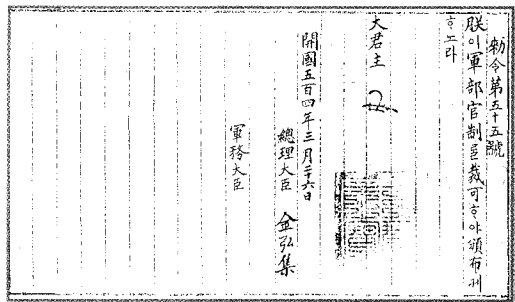 勅令第五十五號
朕이軍部官制를裁可ᄒᆞ야頒布케
ᄒᆞ노라
大君主
開國五百四年三月二十六日
總理大臣 金弘集
軍務大臣